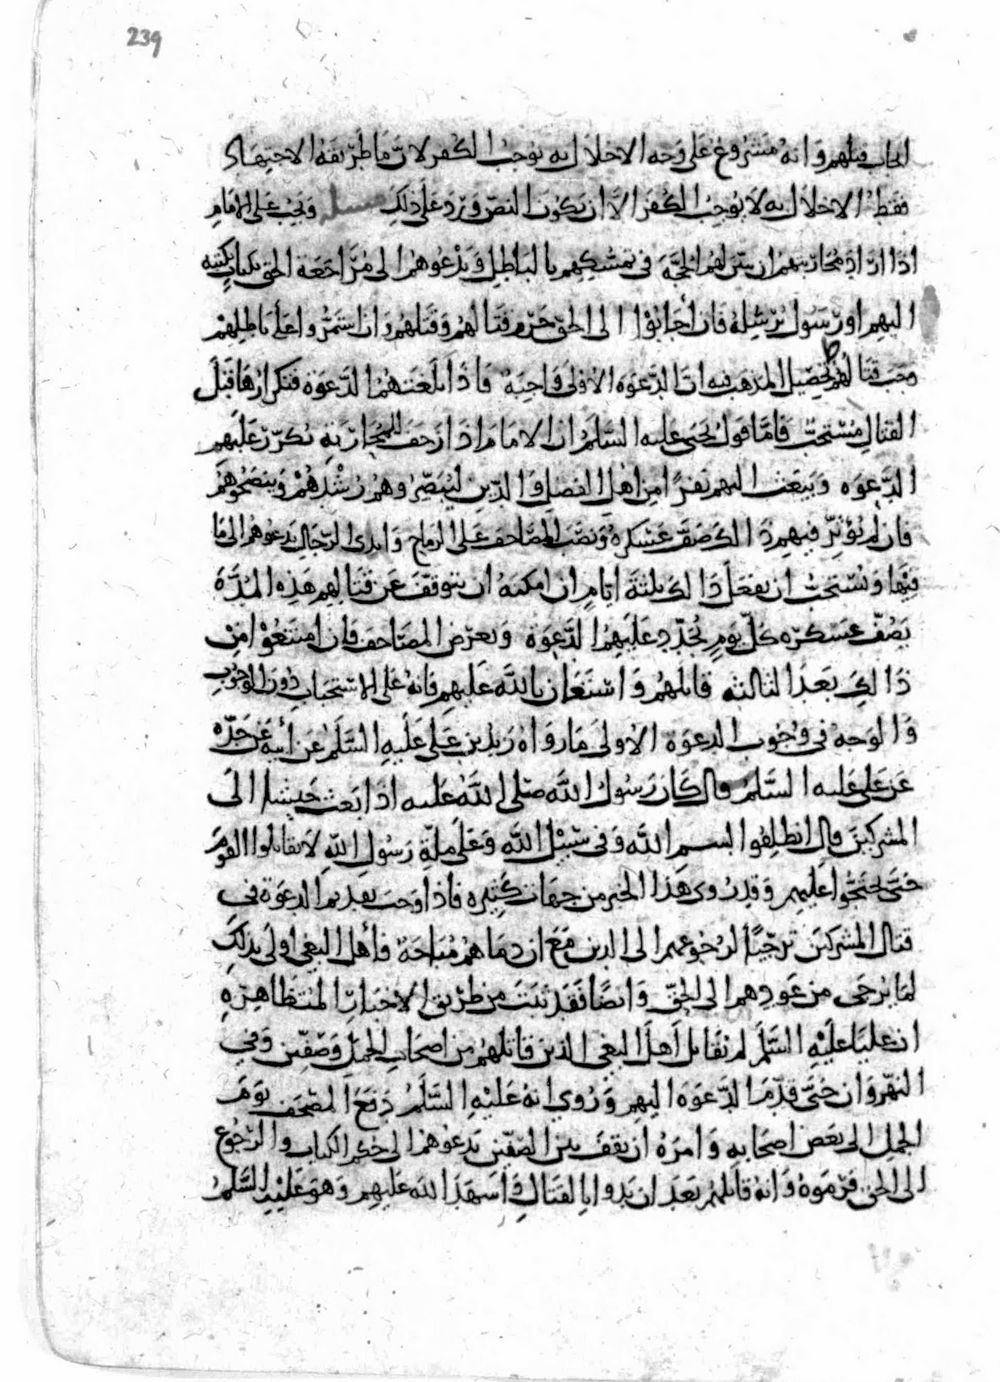 239
الحاب قبلهم وانه مشروع على وجه الاخلال به يوجب الكفر لان ما طريقة الاجتهاد
فقط الاخلال به لا يوجب الكفر الا ان يكون النص ورد على ذلك مسله ويجب على الامام
اذا اراد محاربتهم ان يبين لهم الحجة في تمسكهم بالباطل ويدعوهم الى مراجعة الحق بكتاب يكتبه
اليهم او رسول يرسله فان اجابوا الى الحق حرم قتالهم وقتلهم وان استمروا على باطلهم
وجب قتالهم تحصيل المذهب فيه ان الدعوة الاولى واجبة فاذا بلغتهم الدعوة فتكرارها قبل
القتال مستحب فاما قول يحيى عليه السلم ان الامام اذا زحف للمحاربة يكرر عليهم
الدعوه ويبعث اليهم نفرا من اهل الفضل والدين ليبصروهم رشدهم وينصحوهم
فان لم يؤثر فيهم ذالك صف عسكره ونصب المصاحف على الرماح وامدى الرجال يدعوهم الى ما
فيها ويستحب ان يفعل ذالك ثلثة ايام ان امكنه ان يتوقف عن قتالهم هذه المدة
يصف عسكره كل يوم يجدد عليهم الدعوة ويعرض المصاحف فان امتنعوا من
ذالك بعد الثالثه قاتلهم واستعان بالله عليهم فانه على الاستحباب دون الوجوب
والوجه في وجوب الدعوة الاولى ما رواه زيد بن علي عليه السلم عن ابيه عن جده
عن علي عليه السلم قال كان رسول الله صلى الله عليه اذا بعث جيشا الى
المشركين قال انطلقوا بسم الله وفي سبيل الله وعلى ملة رسول الله لا تقاتلوا القوم
حتى تحتجوا عليهم وقد روي هذا الخبر من جهات كثيره فاذا وجب تقديم الدعوة في
قتال المشركين ترجيا لرجوعهم الى الدين مع ان دماهم مباحة فاهل البغي اولى بذلك
لما يرجى من عودهم الى الحق وايضا فقد ثبت من طريق الاخبار المتظاهرة
ان عليا عليه السلم لم يقاتل اهل البغي الذين قاتلهم من اصحاب الجمل وصفين وفي
النهروان حتى قدم الدعوه اليهم وروي انه عليه السلم دفع المصحف يوم
الجمل الى بعض اصحابه وامره ان يقف بين الصفين يدعوهم الى حكم الكتاب والرجوع
الى الحق فرموه وانه قاتلهم بعد ان بدوا بالقتال واسهد الله عليهم وهو عليه السلم